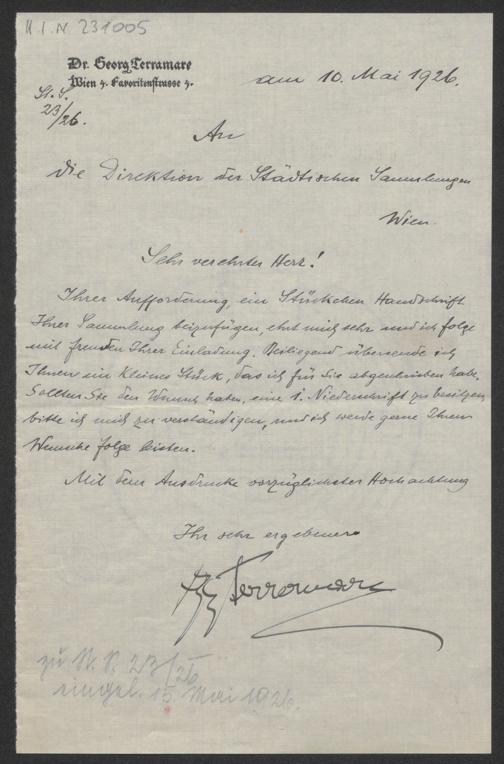 H.I.N 231005
Dr. Georg Terramare
Wien 4. Favoritenstrasse 7.
am 10. Mai 1926.
St. S.
23/26.
An
die Direktion der Städtischen Sammlungen
Wien.
Sehr verehrter Herr!
Ihrer Aufforderung, ein Stückchen Handschrift
Ihrer Sammlung beizufügen, ehrt mich sehr und ich folge
mit freuden Ihrer Einladung. Beiliegend übersende ich
Ihnen ein kleines Stück, das ich für Sie abgeschrieben habe.
Sollten Sie den Wunsch haben, eine 1. Niederschrift zu besitzen,
bitte ich mich zu verständigen, und ich werde gerne Ihrem
Wunsche folge leisten.
Mit dem Ausdrucke vorzüglichster Hochachtung
Ihr sehr ergebener
Terramare
zu St. S. 23/26
eingel. 15. Mai 1926.